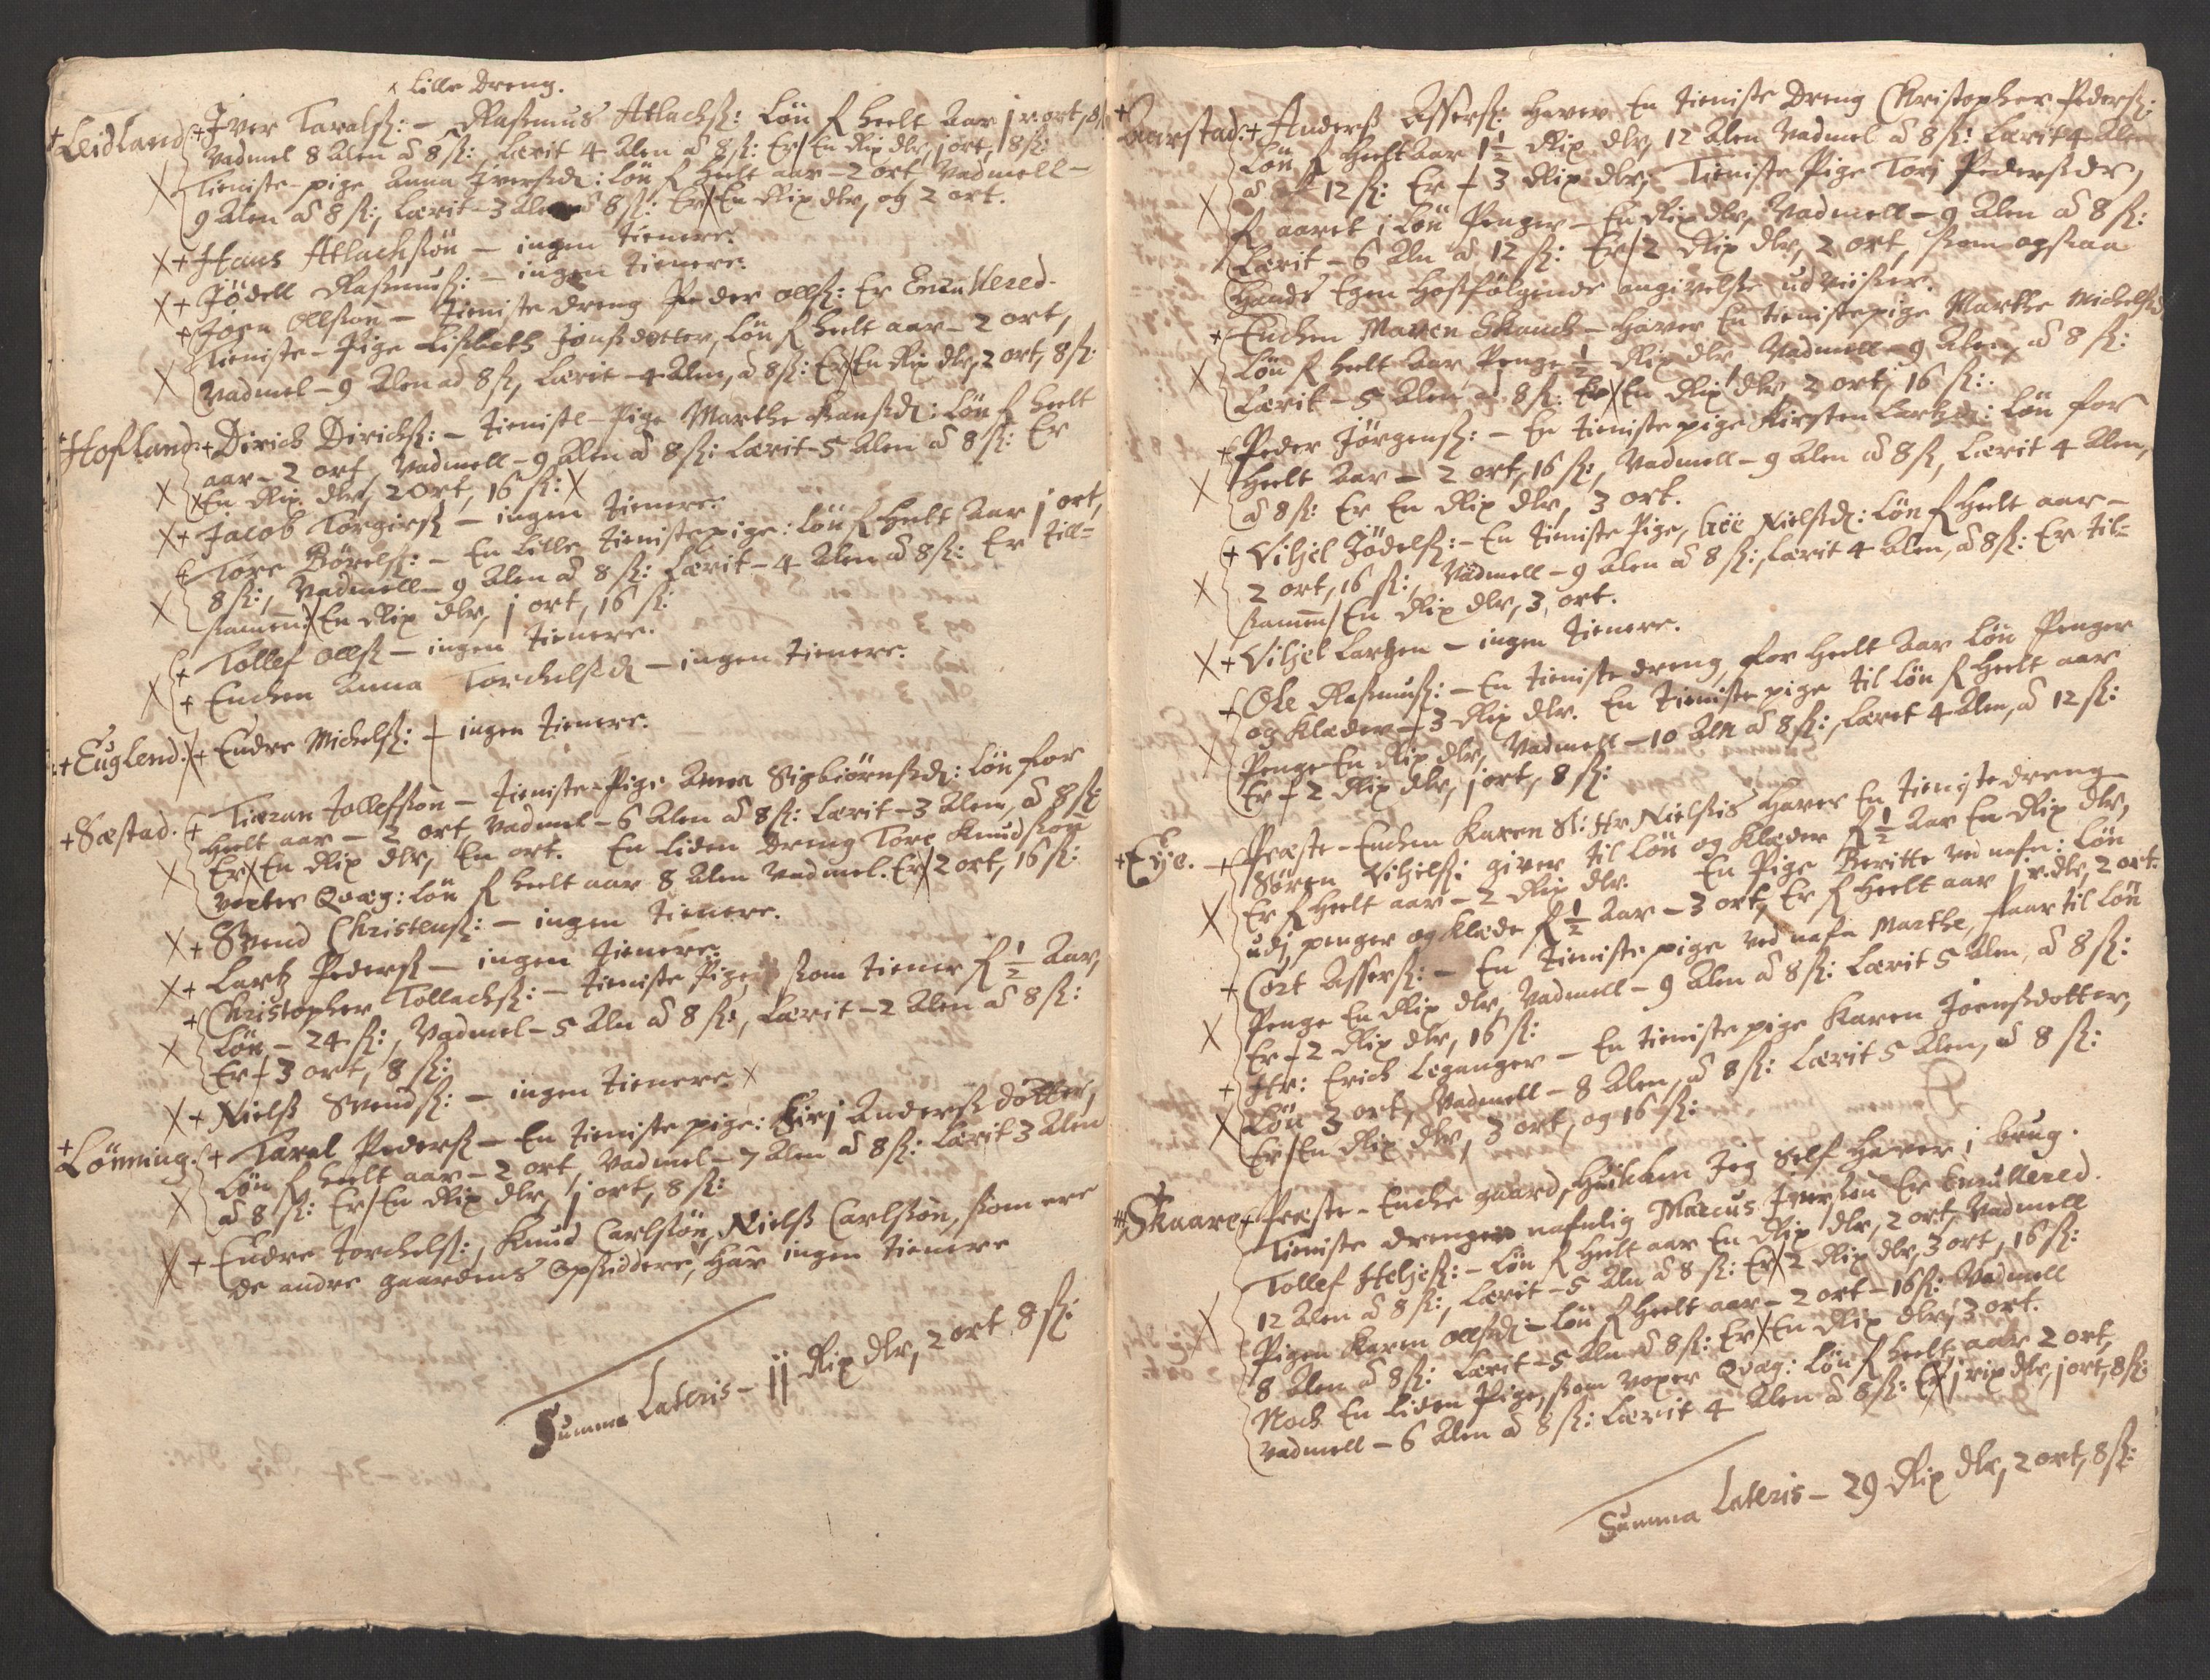 x Lille Dreng.
+Leidland: + Iver Taralsß: – Raßmus Atlachsß: Løn f heelt Aar j r. ort, 8
Vadmel 8 Alen ad 8 ß:, Lærit 4 Alen ad 8 ß: Er/En Rix dlr, j ort, 8 ß:
Tieniste-pige Anna Iversdr: Løn f heelt aar – 2 ort Vadmell –
9 Alen ad 8 ß:, Lærit – 3 Alen ad 8 ß: Er X En Rix dlr, og 2 ort.
X + Hans Atlachsøn – ingen tienere.
X + Jødell Raßmusß: – ingen tienere.
+ Joen Ollsøn – Tieniste dreng Peder Ollsß: Er Enrulered.
Tieniste-Pige Lisbeth Jonsdotter, Løn f heelt aar – 2 ort,
X Vadmel – 9 Alen ad 8 ß, Lærit – 4 Alen, ad 8 ß: Er X En Rix dlr, 2 ort, 8 ß:
Hofland: + Dirich Dirichsß: – Tieniste-Pige Marthe Hansdr: Løn f heelt
aar – 2 ort, Vadmell – 9 Alen ad 8 ß: Lærit – 5 Alen ad 8 ß: Er
X X En Rix dlr, 2 Ort, 16 ß: X
X + Jacob Torgirsß – ingen tienere.
+ Tore Børelsß: – En Lille tienistepige: Løn f heelt Aar j ort,
8 ß:, Vadmell – 9 Alen ad 8 ß: Lærit – 4 Alen ad 8 ß: Er till=
X sammen: X En Rix dlr, j ort, 16 ß:
+ Tollef Ollsß – ingen tienere.
X + Enchen Anna Torchelsdr – ingen tienere.
:+Euglend: X + Endre Michelsß: – ingen tienere.
+Sæstad. + Tiæran Tollefsøn – tieniste-Pige Anna Sigbiørnsdr: Løn for
heelt aar – 2 ort, Vadmel – 6 Alen ad 8 ß: Lærit – 3 Alen, ad 8 ß:
X Er X En Rix dlr, En ort. En liden Dreng Tore Knudsøn
vocter Qvæg: Løn f heelt aar 8 Alen Vadmel. Er X 2 ort, 16 ß:
X + Svend Christensß: – ingen tienere.
X + Lartz Pedersß – ingen tienere.
+ Christopher Tollachsß: – tieniste Pige, som tiener f ½ Aar,
X Løn – 24 ß:, Vadmel – 5 Aln ad 8 ß:, Lærit – 2 Alen ad 8 ß:
Er + 3 ort, 8 ß:
X + Nielß Svendsß: – ingen tienere X
+
Lønning: + Taral Pedersß – En tieniste pige: Kirj Andersdotter,
Løn f heelt aar – 2 ort, Vadmel – 7 Alen ad 8 ß: Lærit 3 Alen
X ad 8 ß: Er/En Rix dlr, j ort, 8 ß:
X + Endre Torchelsß:, Knud Carlsøn, Nielß Carlsøn, som ere
de andre gaardens Opsiddere, har ingen tienere
Summa Lateris – jj Rix dlr, 2 ort 8 ß:
+
Aarstad: + Anderß Assersß: haver En tieniste Dreng Christopher Pedersß:
Løn f heelt Aar 1½ Rix dlr, 12 Alen Vadmel ad 8 ß: Lærit 4 Alen
ad 12 ß: Er + 3 Rix dlr, Tieniste Pige Torj Pedersdr,
X f aaret i Løn Penger – En Rix dlr, Vadmell – 9 Alen ad 8 ß:
Lærit – 6 Aln ad 12 ß: Er/2 Rix dlr, 2 ort, som ogsaa
hands Egen hosfølgende angivelse udviiser.
+ Enchen Maren Skanch – haver En tienistepige Marthe Michelsd
X Løn f heelt Aar Penge ½ Rix dlr Vadmell – 9 Alen, ad 8 ß:
Lærit – 5 Alen ad 8 ß: Er X En Rix dlr 2 ort, 16 ß:
+ Peder Jørgensß: – En tieniste pige Kirsten Lartzdr: Løn for
X heelt Aar – 2 ort, 16 ß:, Vadmell – 9 Alen ad 8 ß, Lærit 4 Alen,
ad 8 ß: Er En Rix dlr, 3 ort.
+ Viljel Jødelsß: – En tieniste Pige, Nielsdr: Løn f heelt aar –
X 2 ort, 16 ß:, Vadmell – 9 Alen ad 8 ß:, Lærit 4 Alen, ad 8 ß: Er til=
sammen/En Rix dlr, 3 ort.
X + Viljel Lartzen – ingen tienere.
+ Ole Raßmusß: – En tieniste dreng, for heelt Aar Løn Penger
og Klæder + 3 Rix dlr. En tieniste pige til Løn f heelt aar
X Penge En Rix dlr, Vadmell – 10 Aln ad 8 ß:, Læret 4 Alen, ad 12 ß:
Er + 2 Rix dlr, j ort, 8 ß:
+Eije. + Præste-Enchen Karen Sl: Hr Nielsis haver En tieniste dreng
Søren Viljelsß: giver til Løn og Klæder f ½ Aar En Rix dlr,
X Er f heelt aar – 2 Rix dlr. En Pige Beritte ved nafn: Løn
udj penger og Klæde f ½ Aar – 3 ort, Er f heelt aar j r. dlr, 2 ort.
+ Cort Assersß: – En tieniste pige ved nafn Marthe, faar til Løn
X Penge En Rix dlr, Vadmell – 9 Alen ad 8 ß: Lærit 5 Alen, ad 8 ß:
Er + 2 Rix dlr, 16 ß:
+ Hr: Erich Leganger – En tieniste pige Karen Joensdotter,
X Løn 3 ort, Vadmell – 8 Alen, ad 8 ß: Lærit 5 Alen, ad 8 ß:
Er/En Rix dlr, 3 ort, og 16 ß:
Skaare + Præste-Enche gaard, huilchen Jeg Self haver i brug.
Tieniste drenger nafnlig Marcus Iversøn Er Enrullered.
Tollef Heljesß: – Løn f heelt aar En Rix dlr, 2 ort, Vadmell
12 Alen ad 8 ß:, Lærit – 5 Aln ad 8 ß: Er X 2 Rix dlr, 3 ort, 16 ß:
X Pigen Karen Ollsdr – Løn f heelt aar – 2 ort – 16 ß: Vadmell
8 Alen ad 8 ß: Lærit – 5 Aln ad 8 ß: Er X En Rix dlr, 3 ort.
Noch En liden Pige, som voger Qvæg: Løn f heelt aar 2 ort,
Vadmell – 6 Alen ad 8 ß: Lærit 4 Alen ad 8 ß: Er j rix dlr, j ort, 8 ß:
Summa Lateris – 29 Rix dlr, 2 ort, 8 ß: